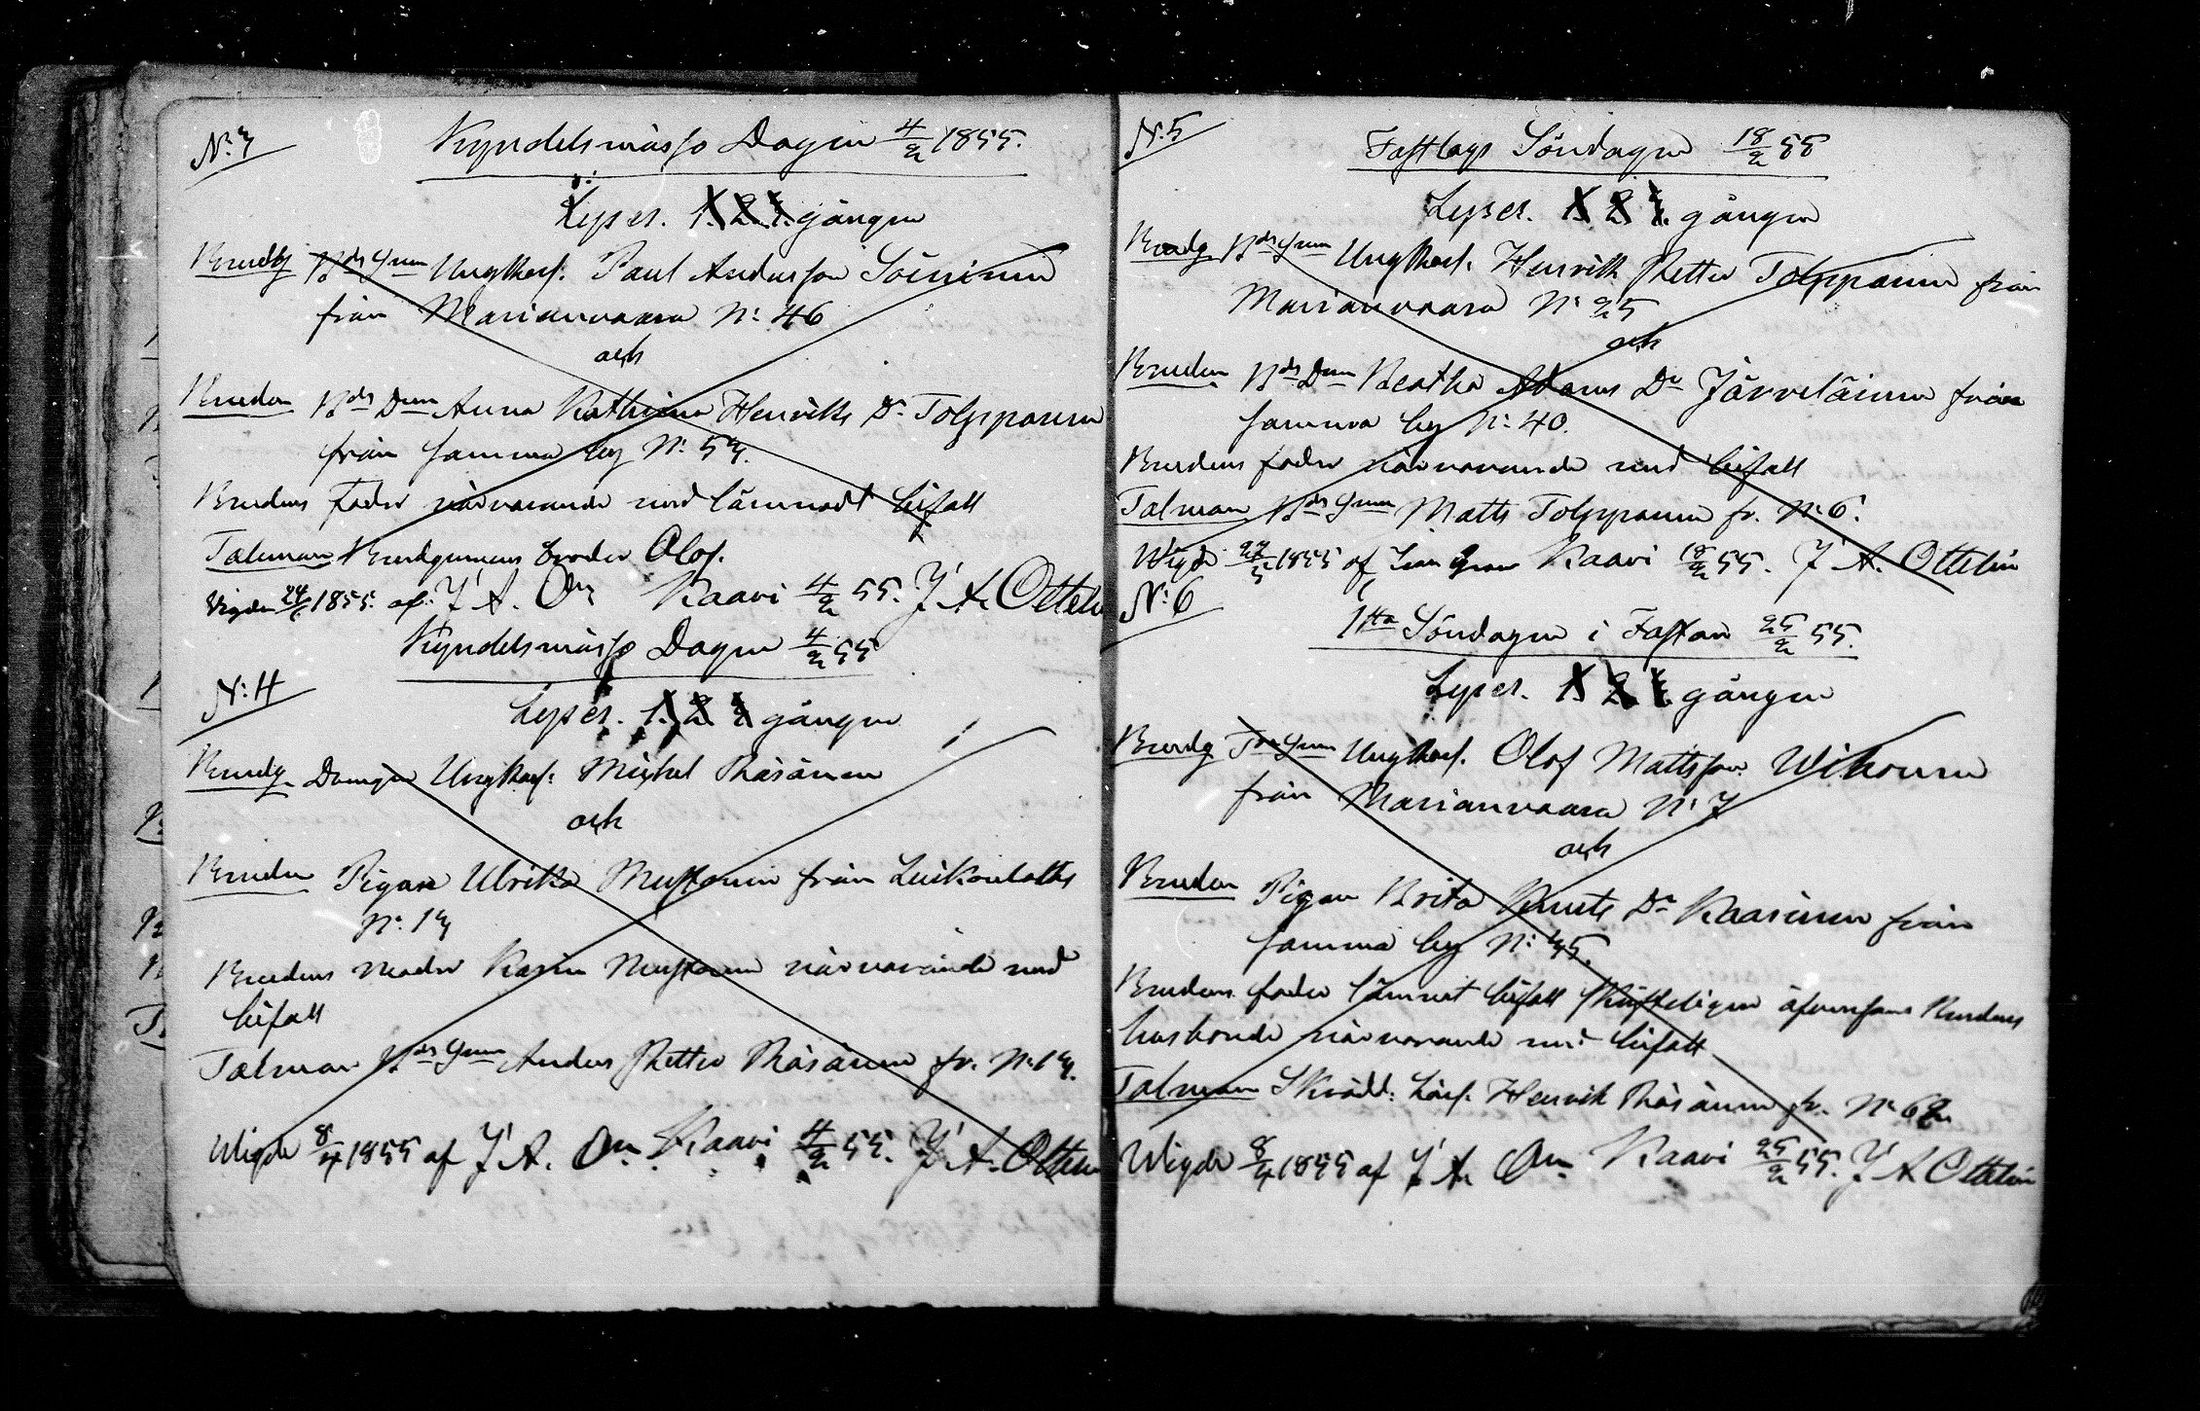 N:3
Kyndelsmässo Dagen 4/2 1855.
Lyses. 1. 2. 3. gången
Brudg Bds Snn Ungkarl. Paul Andersson Soininen
från Marianvaara N: 46
och
Bruden Bds Dnn Anna Kathrina Henriks Dr Tolppanen
från samma by N: 53.
Brudens Fader närvarande med lämnadt bifall
Talman Brudgummens broder Olof.
Vigde 1855. af. J A. On Kaavi 4/2 55. J A. Ottelin
Kyndelsmässo Dagen 4/2 55
N: 4
Lyses. 1. 2. 3 gången
Brudg Drängen Ungkarl: Michel Räsänen
och
Bruden Pigan Ulrika Mustonen från Luikonlaks
N: 13
Brudens moder Karin Mustonen närvarande med
bifall
Talman Bds Snn Anders Petter Räsänen fr. N: 13.
Wigde 8/4 1855 af J A. On Kaavi 4/2 55. J A. Ottelin
N:5
Fastlags Söndagen 18/2 55
Lyses. 1. 2. 3. gången
Brudg Bds Snn Ungkarl. Henrik Petter Tolppanen från
Marianvaara N: 25
och
Bruden Bds Dnn Beatha Adams Dr Järveläinen från
samma by N: 40.
Brudens fader närvarande med bifall
Talman Bds Snn Matts Tolppanen fr. N: 6.
Wigde 1855 af Kaavi 18/2 55. J A. Ottelin
N: 6
1sta Söndagen i Fastan 25/2 55.
Lyses. 1. 2. 3. gången
Brudg Snn Ungkarl. Olof Mattsson Wihonen
från Marianvaara N: 7
och
Bruden Pigan Brita Knuts Dr Kaasinen från
samma by N: 35.
Brudens fader lämnat bifall skrifteligen äfvensom Brudens
husbonde närvarande med bifall
Talman Skrädd: Lärl. Henrik Räsänen fr. N: 62
Wigde 8/4 1855 af J A. On Kaavi 25/2 55. J A Ottelin